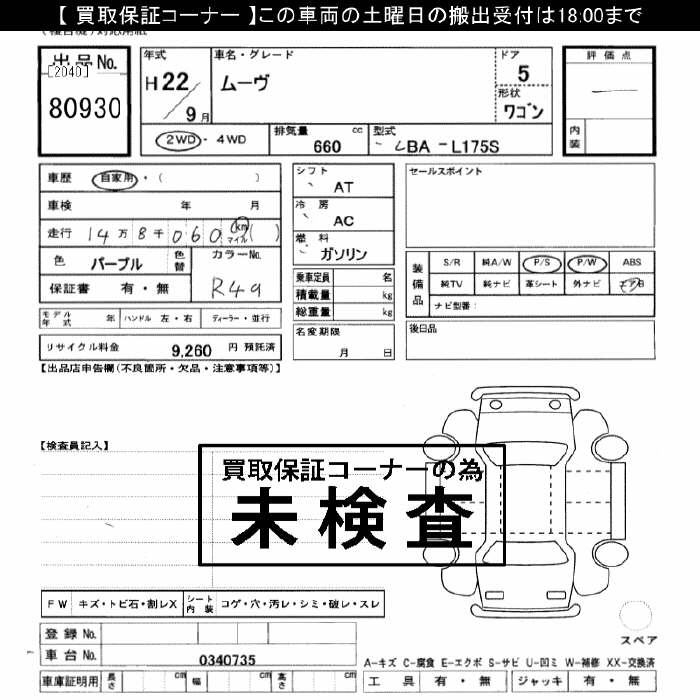 【 買取保証コーナー 】この車両の土曜日の搬出受付は18:00まで
出品No.
[2040]
80930
年式
H22/9月
車名・グレード
ムーヴ
ドア
5
形状
ワゴン
評価点
―
内装
2WD・4WD
排気量 cc
660
型式
LBA-L175S
車歴 自家用・( )
車検 年 月
走行 14万8千060 km マイル ( )
色 パープル 色替
カラーNo.
R49
保証書 有・無
シフト
AT
冷房
AC
燃料
ガソリン
乗車定員 名
積載量 kg
総重量 kg
セールスポイント
装備品
S/R 純A/W P/S P/W ABS
純TV 純ナビ 革シート 外ナビ エアB
ナビ型番:
モデル年式 年 ハンドル 左・右 ディーラー・並行
名変期限
月 日
後日品
リサイクル料金 9,260 円 預託済
【出品店申告欄(不良箇所・欠品・注意事項等)】
【検査員記入】
買取保証コーナーの為
未検査
FW キズ・トビ石・割レX シート内装 コゲ・穴・汚レ・シミ・破レ・スレ
登録No.
車台No. 0340735
車庫証明用 長さ cm 幅 cm 高さ cm
スペア
A-キズ C-腐食 E-エクボ S-サビ U-凹ミ W-補修 XX-交換済
工具 有・無 ジャッキ 有・無